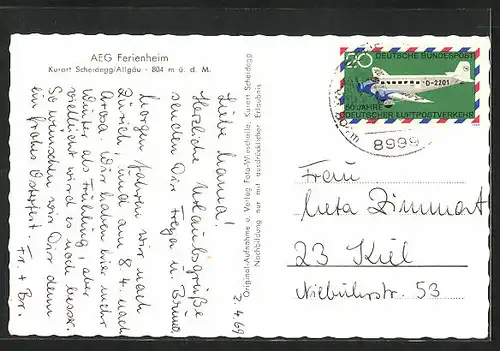 AEG Ferienheim
Kurort Scheidegg/Allgäu - 804 m ü. d. M.
2.4.69
Liebe Mama!
Herzliche Urlaubsgrüße
senden Dir Freya u. Bruno
Morgen fahren wir nach
Zürich, und am 8.4. nach
Arosa. Wir haben hier mehr
Winter als Frühling, aber
vielleicht wird es noch besser.
So wünschen wir Dir denn
ein frohes Osterfest.
Fr. + Br.
Original-Aufnahme u. Verlag Foto-Wieschalla, Kurort Scheidegg
Nachbildung nur mit ausdrücklicher Erlaubnis
20 DEUTSCHE BUNDESPOST
D-2201
50 JAHRE
DEUTSCHER LUFTPOSTVERKEHR
8999
Frau
Meta Zimmermann
23 Kiel
Niebuhrstr. 53